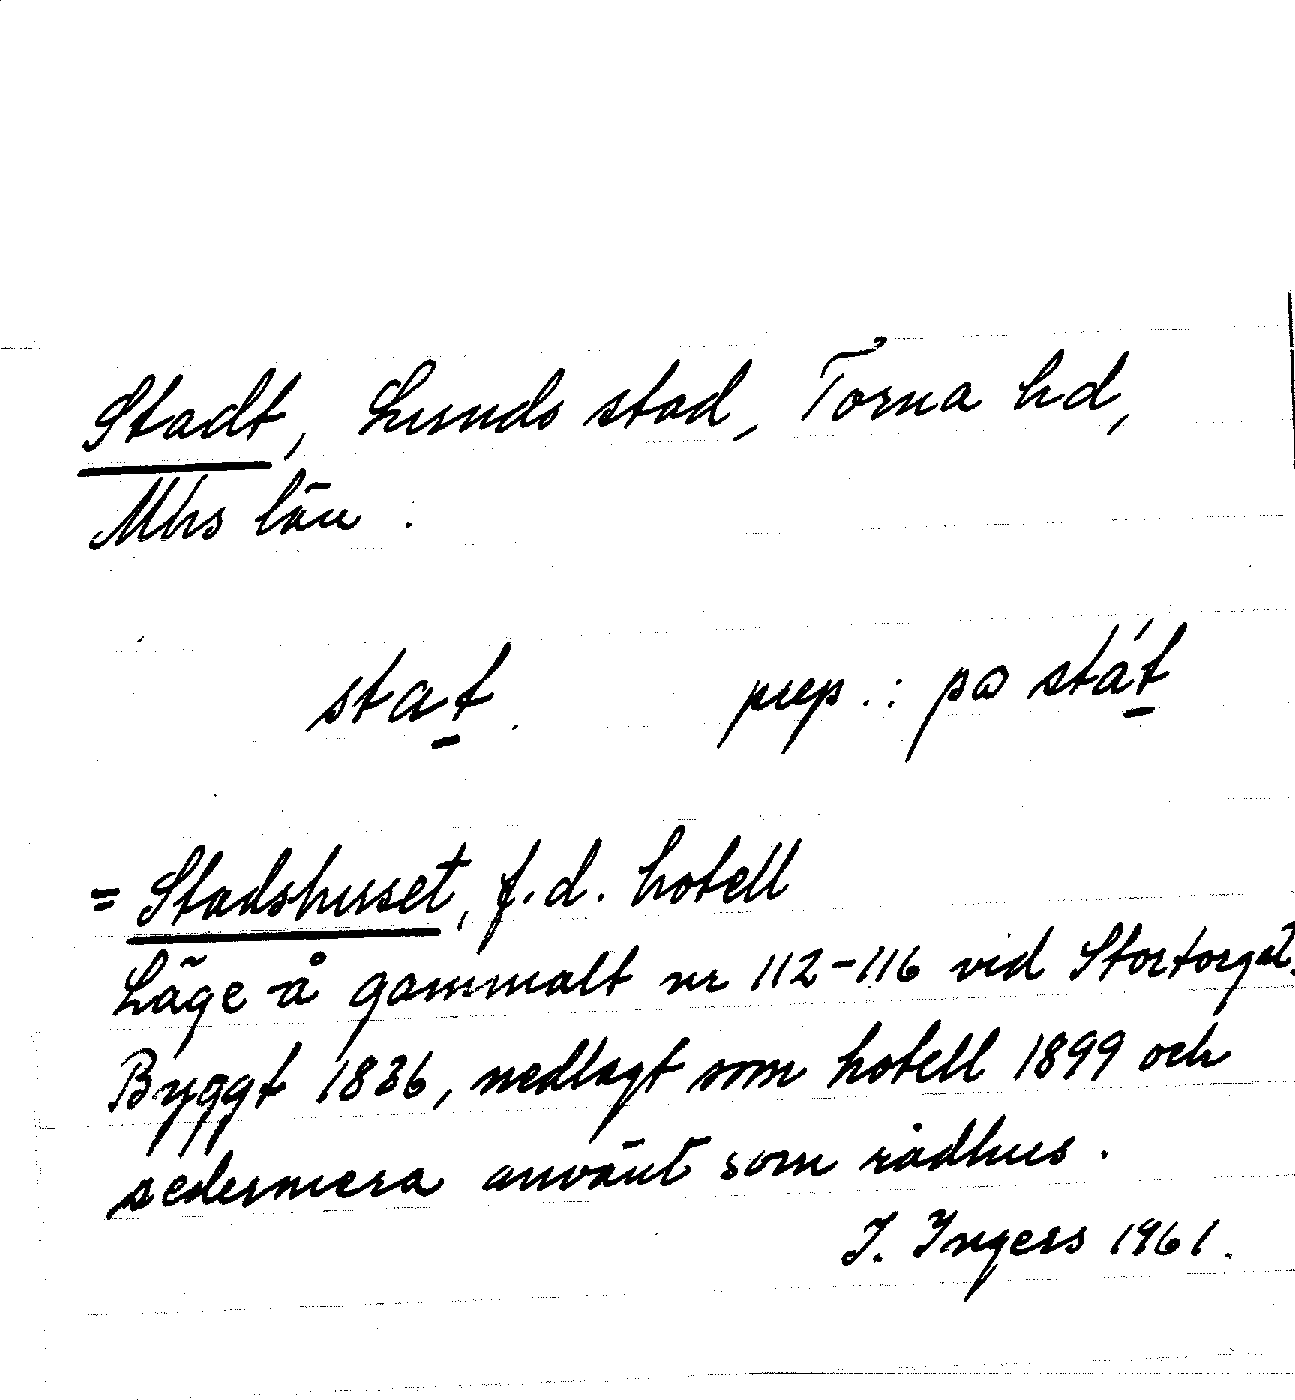 Stadt, Lunds stad, Torna hd,
Mhs län.
stat. prep.: pɷ stát
= Stadshuset, f.d. hotell
Läge å gammalt nr 112-116 vid Stortorget.
Byggt 1836, nedlagt som hotell 1899 och
sedermera använt som rådhus.
I. Ingers 1961.